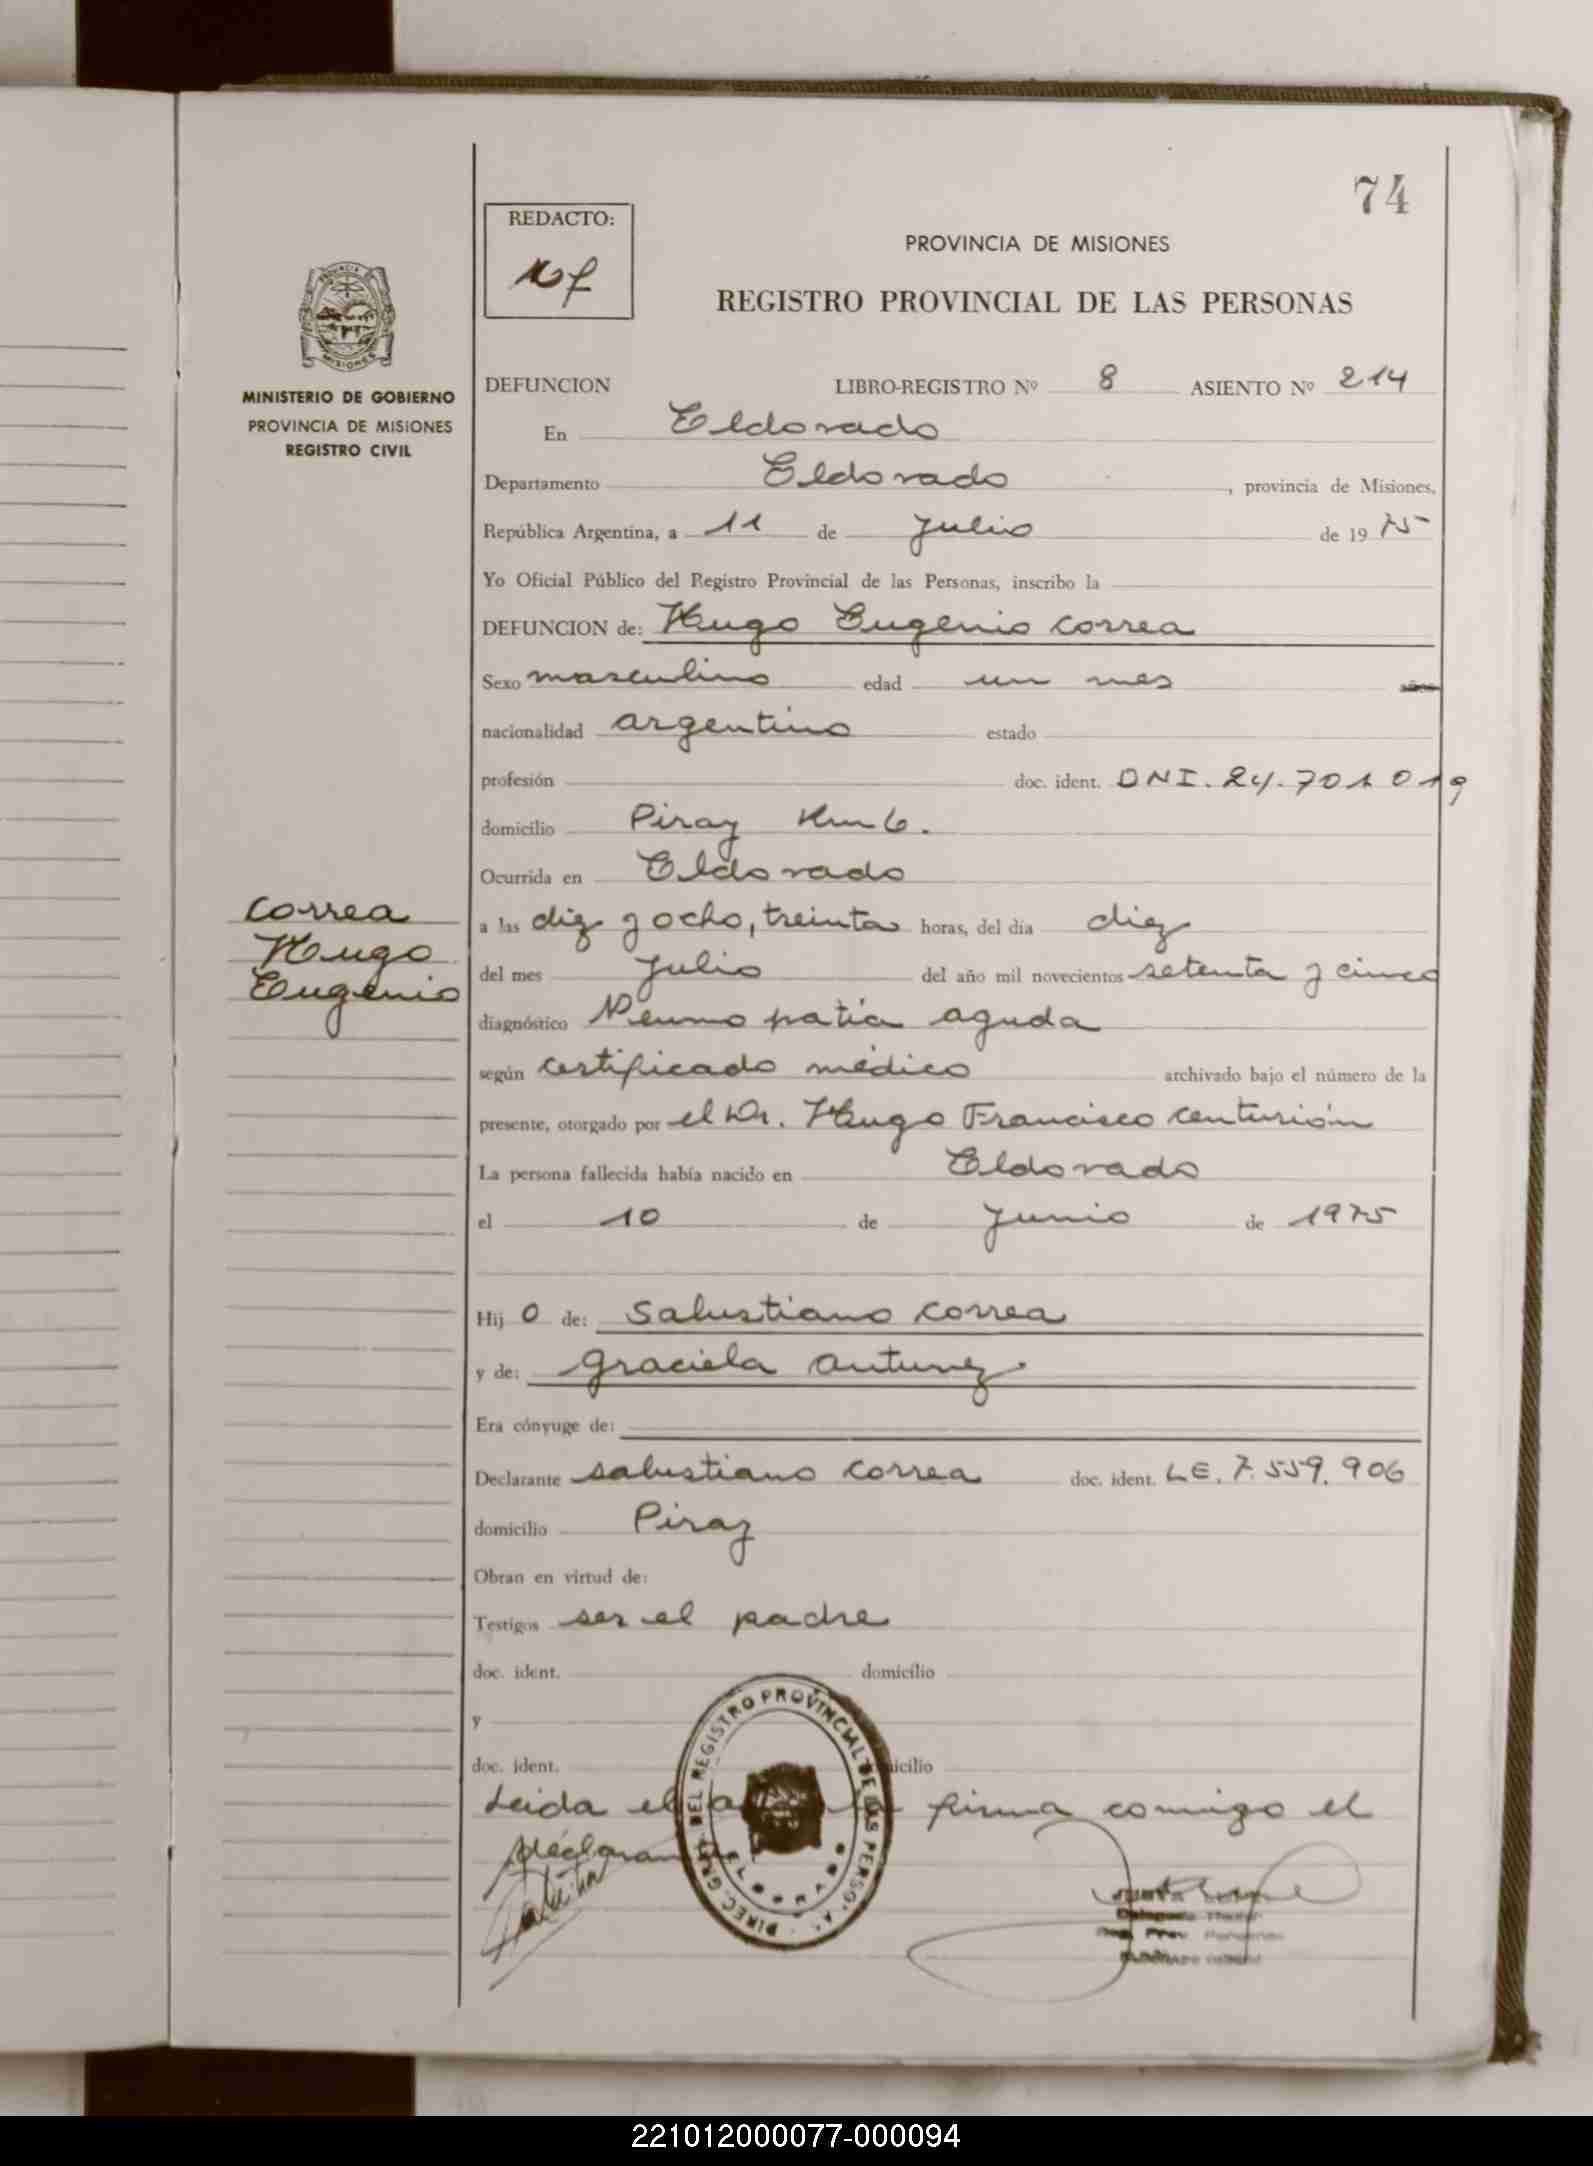 74
REDACTO:
PROVINCIA DE MISIONES
REGISTRO PROVINCIAL DE LAS PERSONAS
PROVINCIA DE
MISIONES
MINISTERIO DE GOBIERNO
PROVINCIA DE MISIONES
REGISTRO CIVIL
DEFUNCION LIBRO-REGISTRO Nº 8 ASIENTO Nº 214
En Eldorado
Departamento Eldorado, provincia de Misiones,
República Argentina, a 11 de Julio de 1975
Yo Oficial Público del Registro Provincial de las Personas, inscribo la
DEFUNCION de: Hugo Eugenio Correa
Sexo masculino edad un mes años
nacionalidad argentino estado
profesión doc. ident. DNI. 24.701019
domicilio Piray Km 6.
Ocurrida en Eldorado
Correa
Hugo
Eugenio
a las diez y ocho, treinta horas, del día diez
del mes Julio del año mil novecientos setenta y cinco
diagnóstico Neumopatía aguda
según certificado médico archivado bajo el número de la
presente, otorgado por el Dr. Hugo Francisco Centurión
La persona fallecida había nacido en Eldorado
el 10 de Junio de 1975
Hij o de: Salustiano Correa
y de: Graciela Antunez.
Era cónyuge de:
Declarante Salustiano Correa doc. ident. LE. 7.559.906
domicilio Piray
Obran en virtud de:
Testigos ser el padre
doc. ident. domicilio
y
doc. ident. icilio
Leida el firma comigo el
declaran
DIREC. GRAL. DEL REGISTRO PROVINCIAL DE LAS PERSO
ELDORADO
221012000077-000094